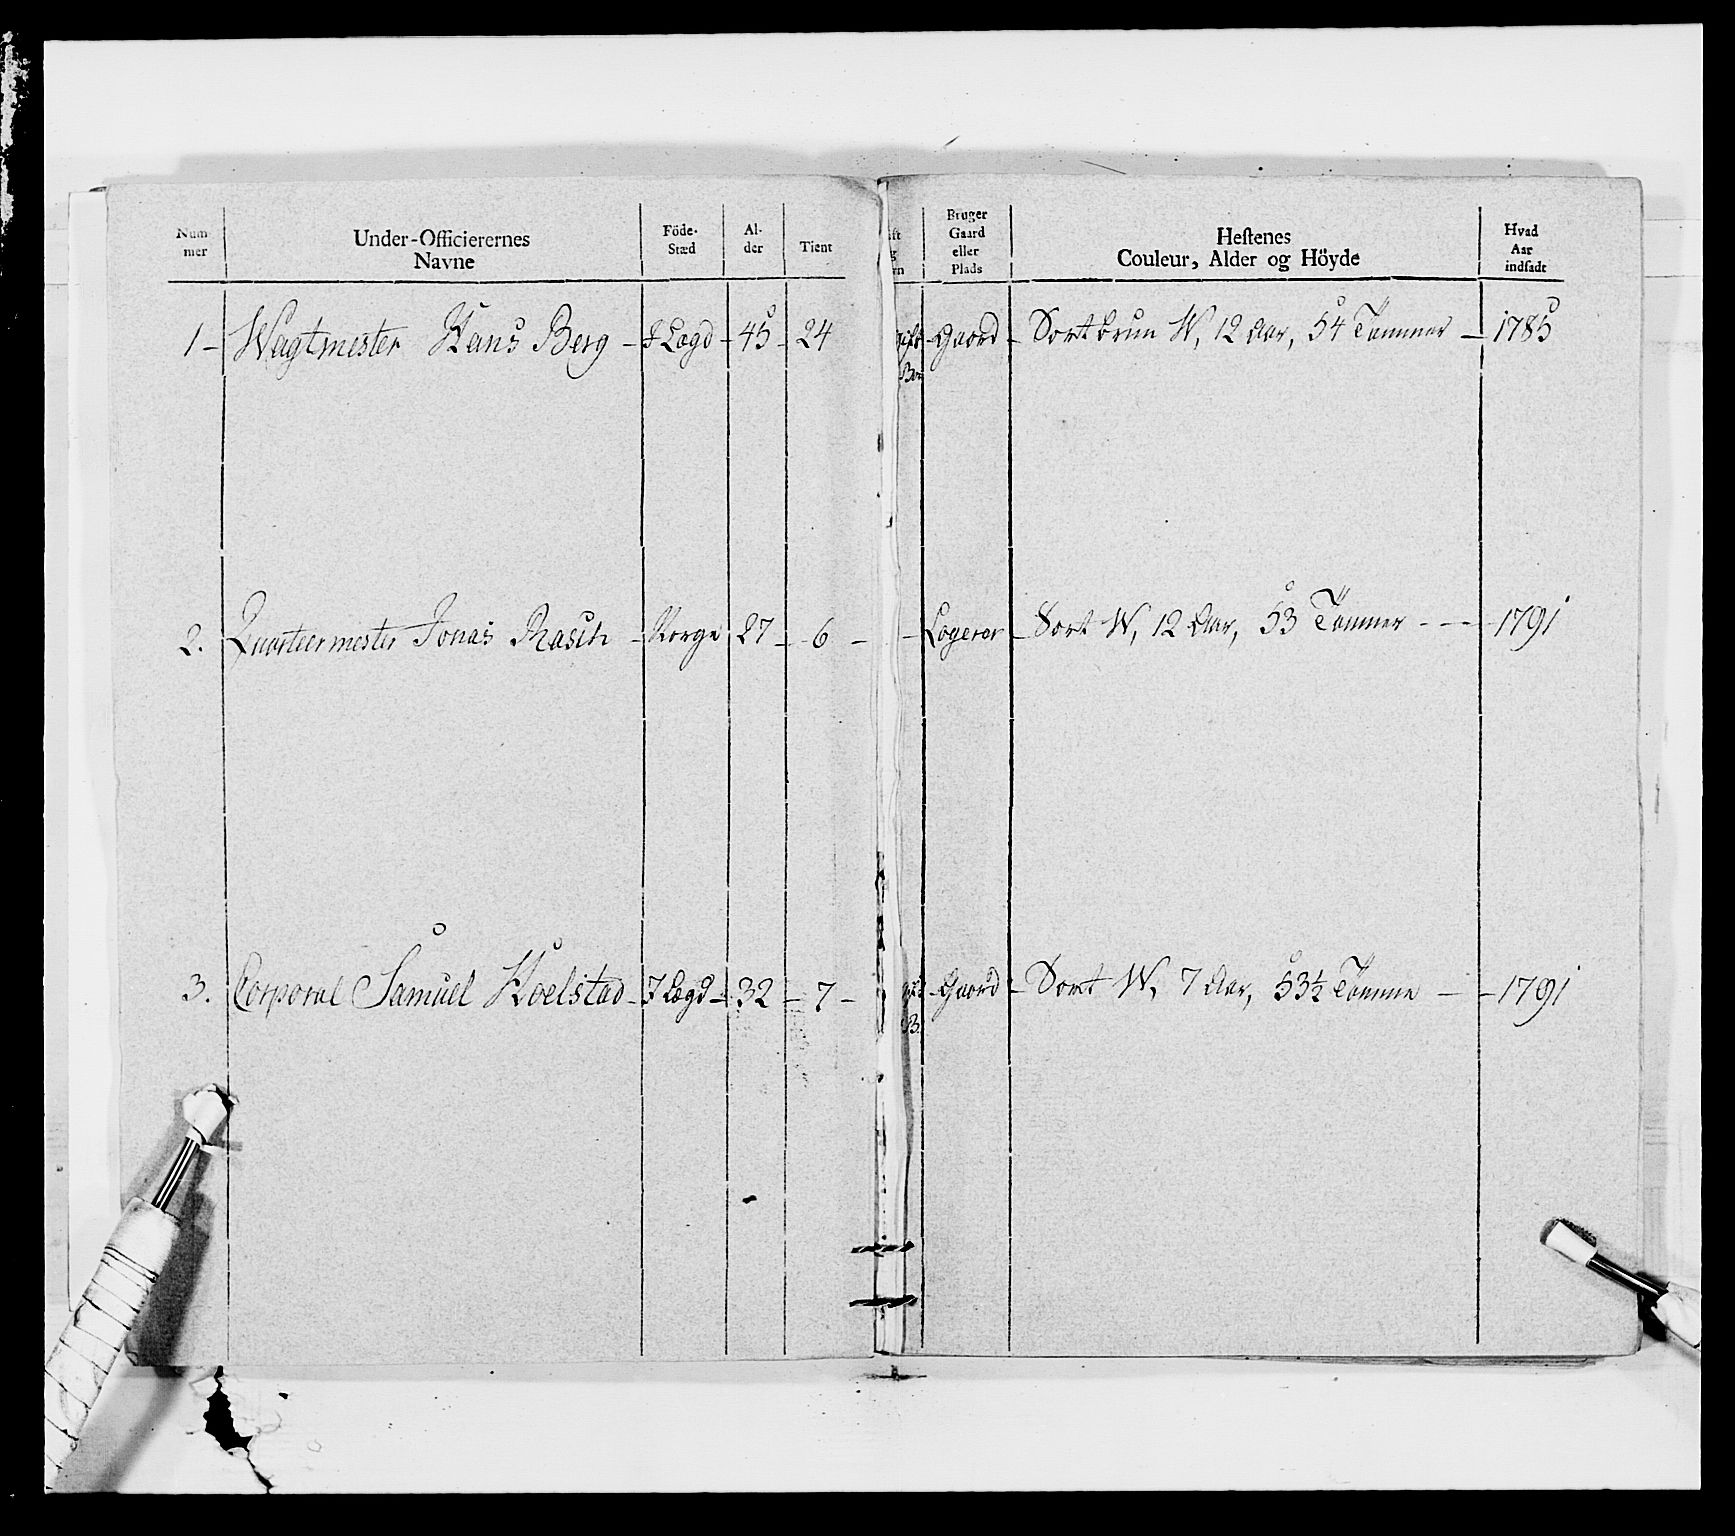 Num-
mer
Under-Officierernes
Navne
Föde-
Stæd
Al-
der
Tient
Bruger
Gaard
eller
Plads
Hestenes
Couleur, Alder og Höyde
Hvad
Aar
indsadt
1 - Wagtmester Hans Berg - I Lægd - 45 - 24 - Gaard - Sortbrun W, 12 Aar, 54 Tommer - 1785
2. Quarteermester Jonas Rasch - Norge 27 - 6 - - Logerer - Sort W, 12 Aar, 53 Tommer - - - 1791
3. Corporal Samuel Hoelstad - I Lægd - 32 - 7 - - Gaard - Sort W, 7 Aar, 53½ Tomme - - 1791